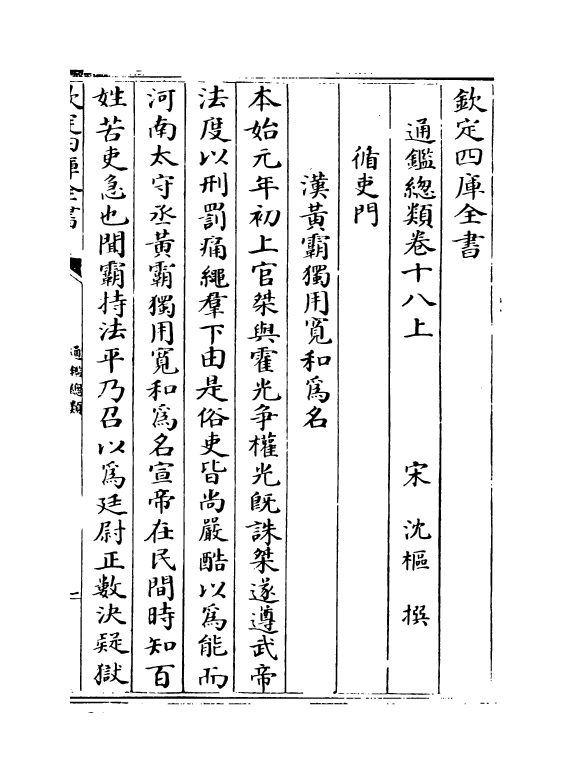 欽定四庫全書
通鑑總類卷十八上
宋 沈樞 撰
循吏門
漢黃霸獨用寛和爲名
本始元年初上官桀與霍光争權光旣誅桀遂遵武帝
法度以刑罰痛繩羣下由是俗吏皆尚嚴酷以爲能而
河南太守丞黃霸獨用寛和爲名宣帝在民間時知百
姓苦吏急也聞霸持法平乃召以爲廷尉正數決疑獄
欽定四庫全書
通鑑總類